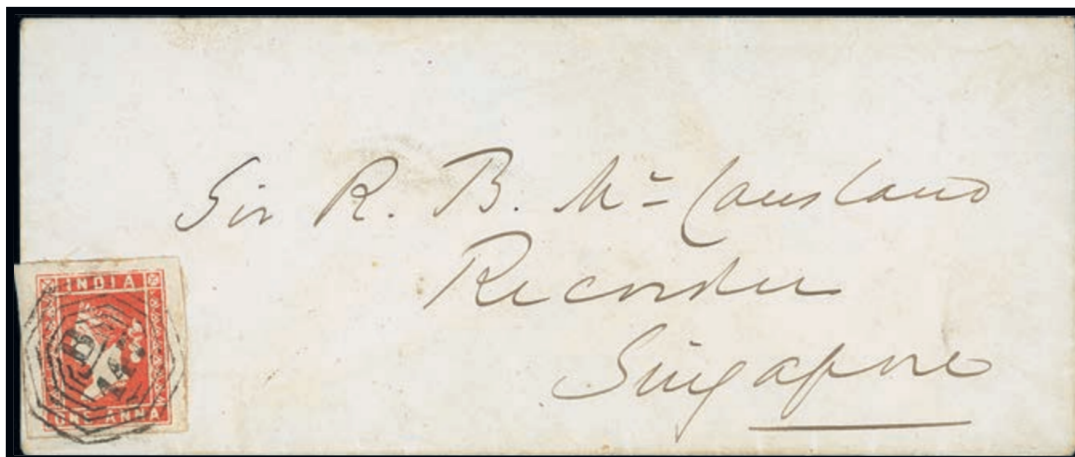 Sir R. B. Mc Causland
Recorder
Singapore
INDIA
B
147
ONE ANNA